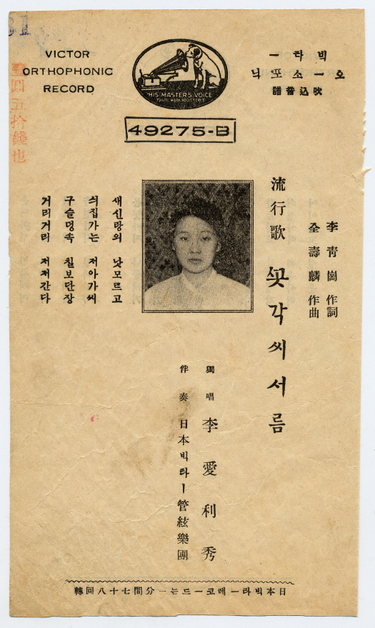 VICTOR
ORTHOPHONIC
RECORD
HIS MASTER'S VOICE
빅타ー
오ー소포닉
吹込音譜
49275-B
壹圓五拾錢也
李靑崗 作詞
全壽麟 作曲
流行歌 꼿각씨서름
獨唱 李愛利秀
伴奏 日本빅타ー管絃樂團
새신랑의 낫모르고
싀집가는 저아가씨
구슬덩속 칠보단장
거리거리 저저간다
日本빅타ー레코ー드는一分間七十八回轉